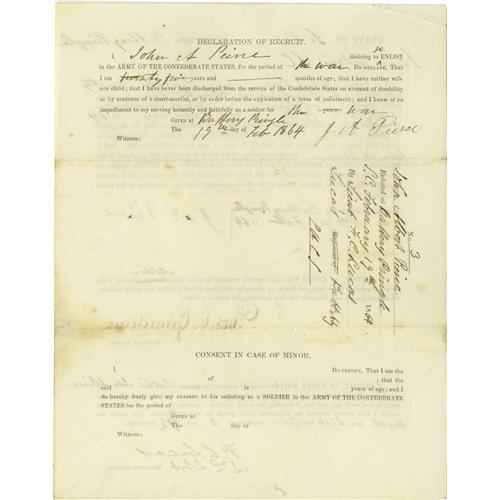 DECLARATION OF RECRUIT.
I, John A Peirce desiring to reENLIST
in the ARMY OF THE CONFEDERATE STATES, for the period of the war Do DECLARE, That
I am twenty five years and months of age; that I have neither wife
nor child; that I have never been discharged from the service of the Confederate States on account of disability
or by sentence of a court-martial, or by order before the expiration of a term of enlistment; and I know of no
impediment to my serving honestly and faithfully as a soldier for the years. war
GIVEN AT Battery Pringle
The 19th day of Feb 1864 J A Pierce
Witness:
No. 3
John Albert Peirce
Enlisted at Battery Pringle
S.C. February 19th 1864
By Lieut H. C. Lucas
Lucas' Regiment of Battery
CONSENT IN CASE OF MINOR.
I, Do CERTIFY, That I am the
of ; that the
said is years of age; and I
do hereby freely give my consent to his enlisting as a SOLDIER in the ARMY OF THE CONFEDERATE
STATES for the period of
GIVEN AT
The day of
Witness: